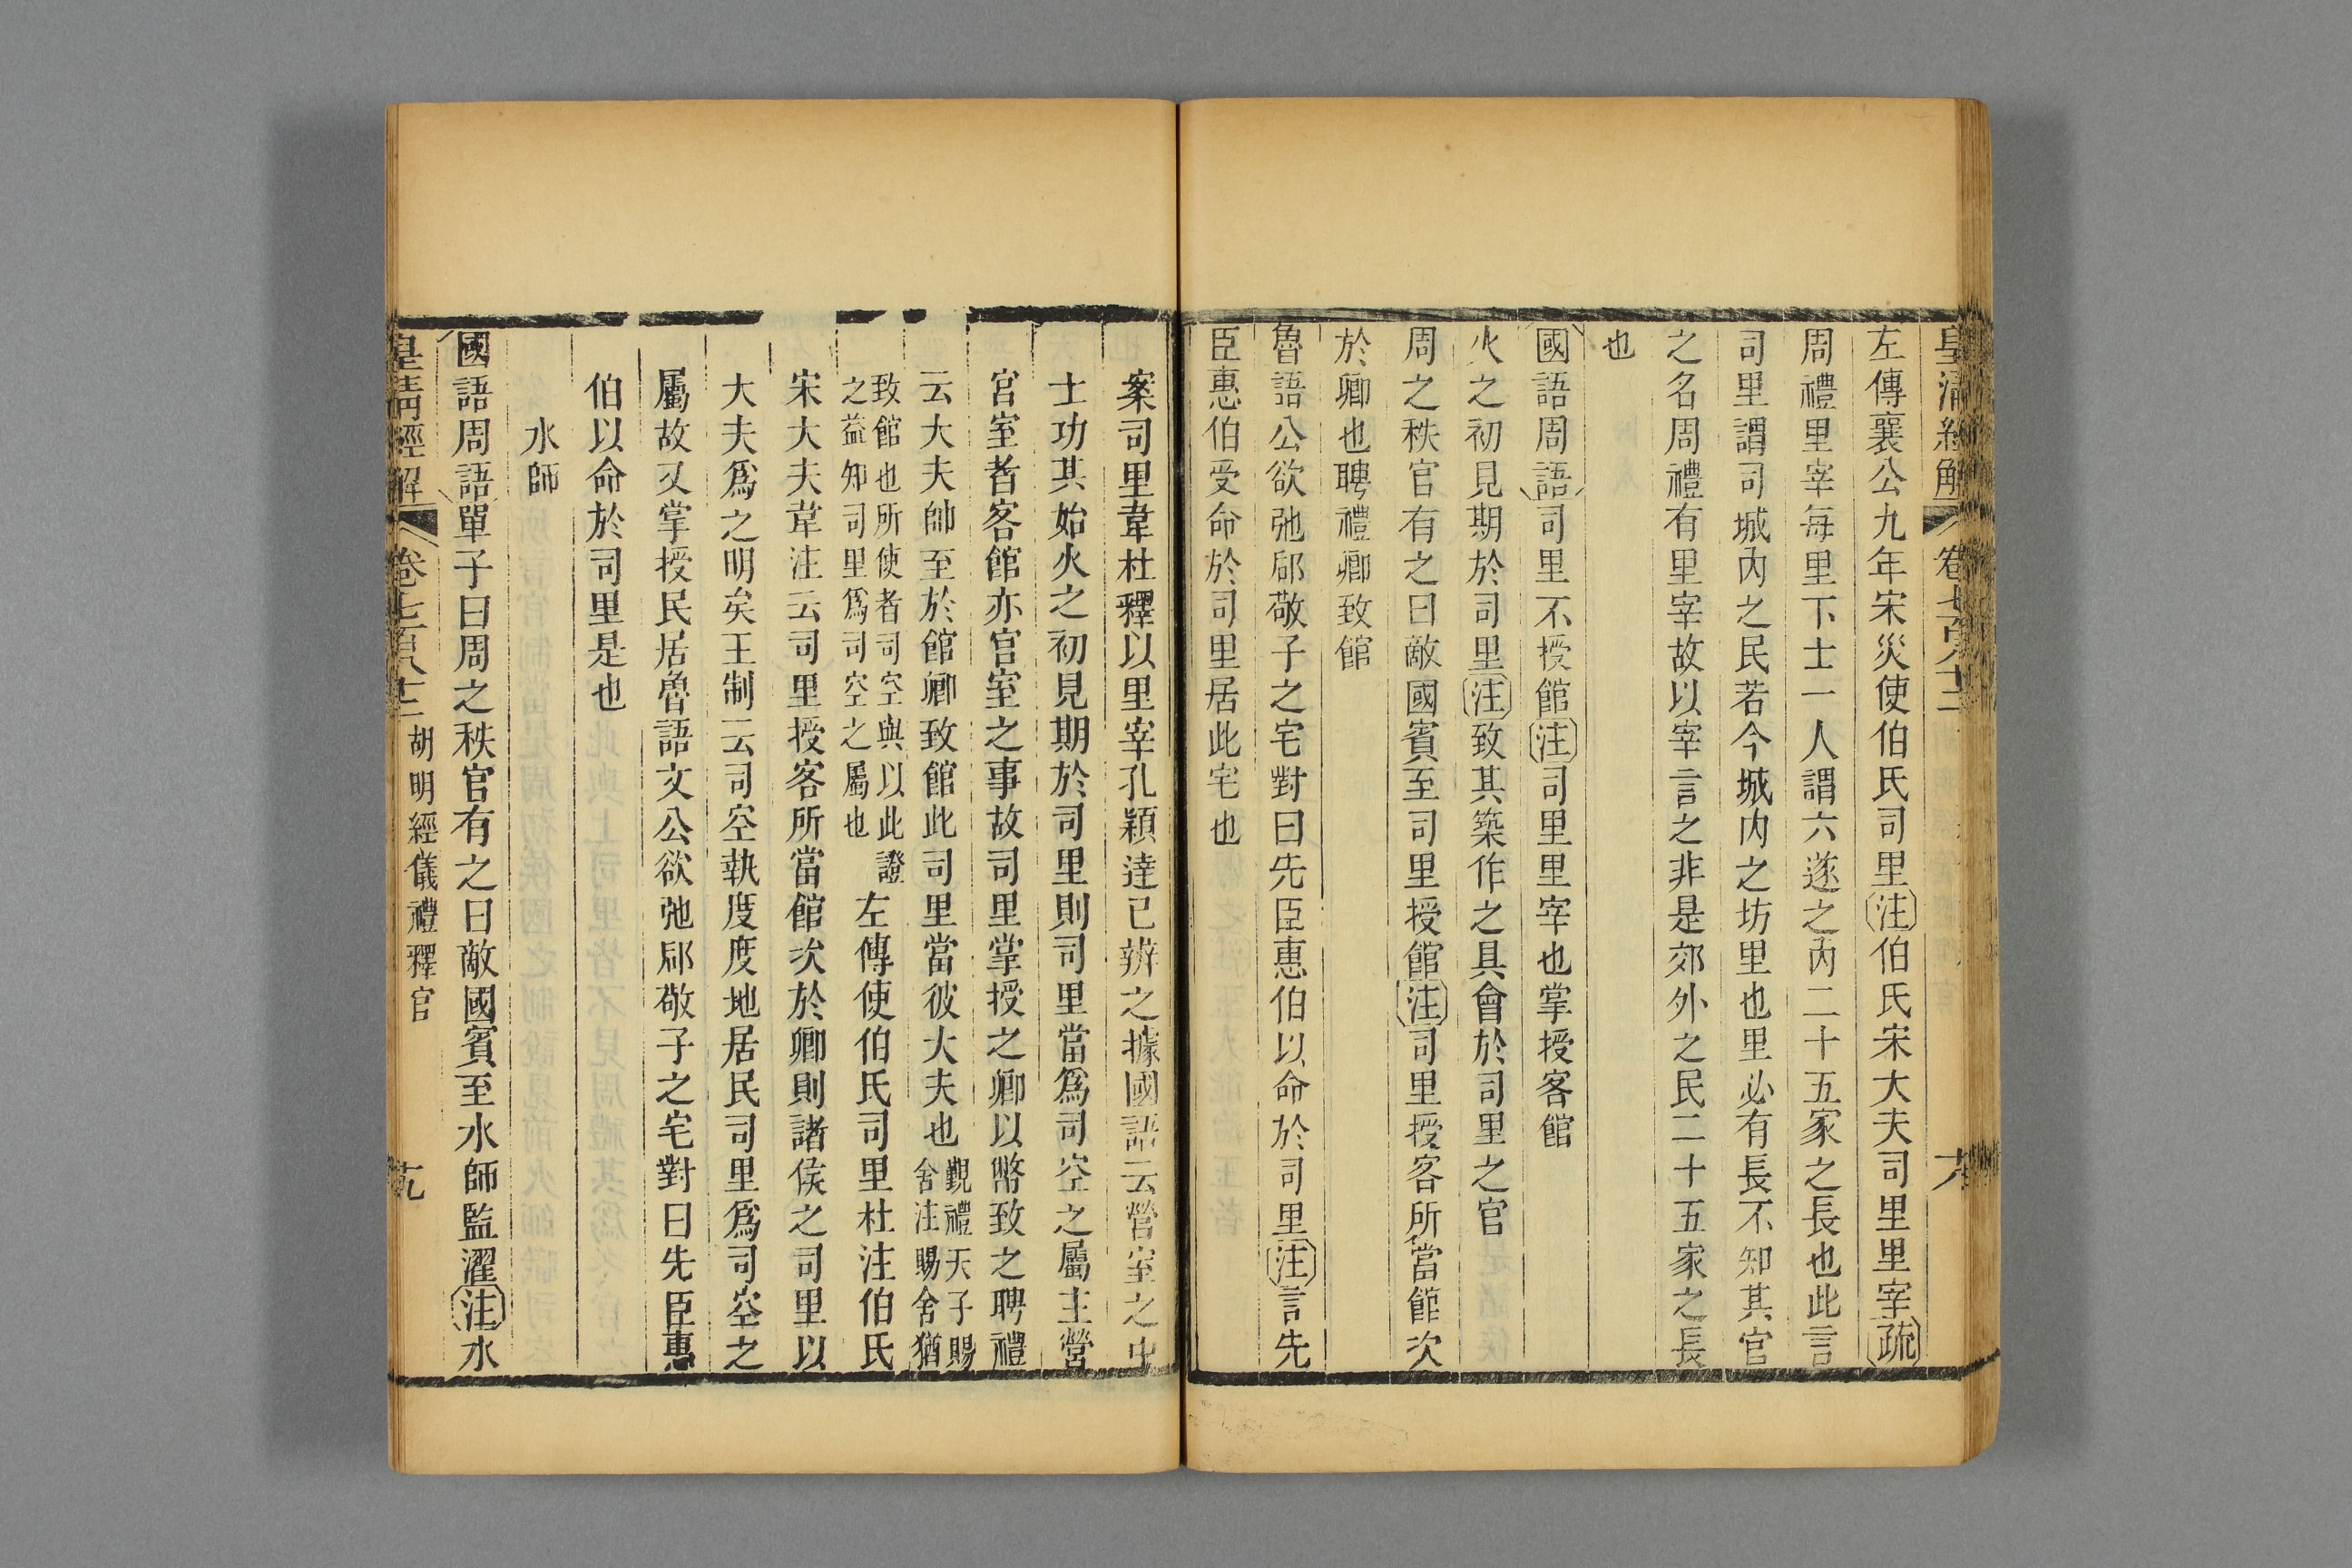 皇清經解 卷七百八十二
左傳襄公九年宋災使伯氏司里注伯氏宋大夫司里里宰疏
周禮里宰每里下士一人謂六遂之內二十五家之長也此言
司里謂司城內之民若今城內之坊里也里必有長不知其官
之名周禮有里宰故以宰言之非是郊外之民二十五家之長
也
國語周語司里不授館注司里里宰也掌授客館
火之初見期於司里注致其築作之具會於司里之官
周之秩官有之曰敵國賓至司里授館注司里授客所當館次
於卿也聘禮卿致館
魯語公欲弛郈敬子之宅對曰先臣惠伯以命於司里注言先
臣惠伯受命於司里居此宅也
案司里韋杜釋以里宰孔穎達已辨之據國語云營室之中
土功其始火之初見期於司里則司里當爲司空之屬主營
宮室者客館亦宮室之事故司里掌授之卿以幣致之聘禮
云大夫帥至於館卿致館此司里當彼大夫也覲禮天子賜舍注賜舍猶
致館也所使者司空與以此證之益知司里爲司空之屬也左傳使伯氏司里杜注伯氏
宋大夫韋注云司里授客所當館次於卿則諸侯之司里以
大夫爲之明矣王制云司空執度度地居民司里爲司空之
屬故又掌授民居魯語文公欲弛郈敬子之宅對曰先臣惠
伯以命於司里是也
水師
國語周語單子曰周之秩官有之曰敵國賓至水師監濯注水
皇清經解 卷七百八十二 胡明經儀禮釋官 十九